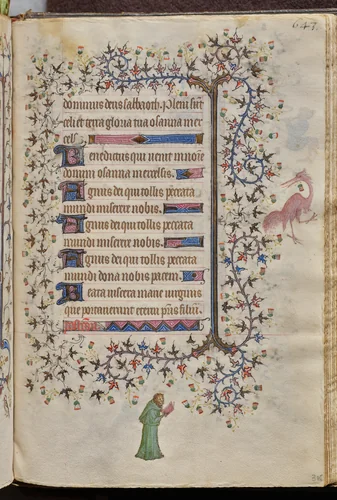 647.
dominus deus sabbaoth. Pleni sūt
celi et terra gloria tua osanna in ex
cels
Benedictus qui venit in noīe
domini osanna in excelsis.
Agnus dei qui tollis peccata
mundi miserere nobis.
Agnus dei qui tollis peccata
mundi miserere nobis.
Agnus dei qui tollis peccata
mundi dona nobis pacem.
Beata viscera marie virginis
que portaverunt eterni pr̄is filiū.